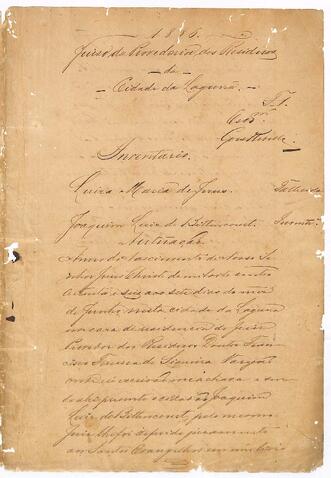 1886.
Juiso da Provedoria dos Residuos
da
Cidade da Laguna
F. 1.
Escr.m
Inventario.
Luiza Maria de Jesus Fallecida
Joaquim Luiz de Bittencourt Invente
Autuação
Anno do Nascimento de Nosso Se
nhor Jesus Christo de mil oito centos
oitenta e seis aos sete dias do mez
de Junho, nesta cidade da Laguna
em casa de residencia do Juiz
Provedor dos Residuos Doutor Fran
cisco Ferreira de Siqueira Varejão
onde eu escrivão me achava e sen
do ahi presente o cidadão Joaquim
Luiz de Bittencourt, pelo mesmo
Juiz lhe foi deferido juramento
aos Santos Evangelhos em um livro